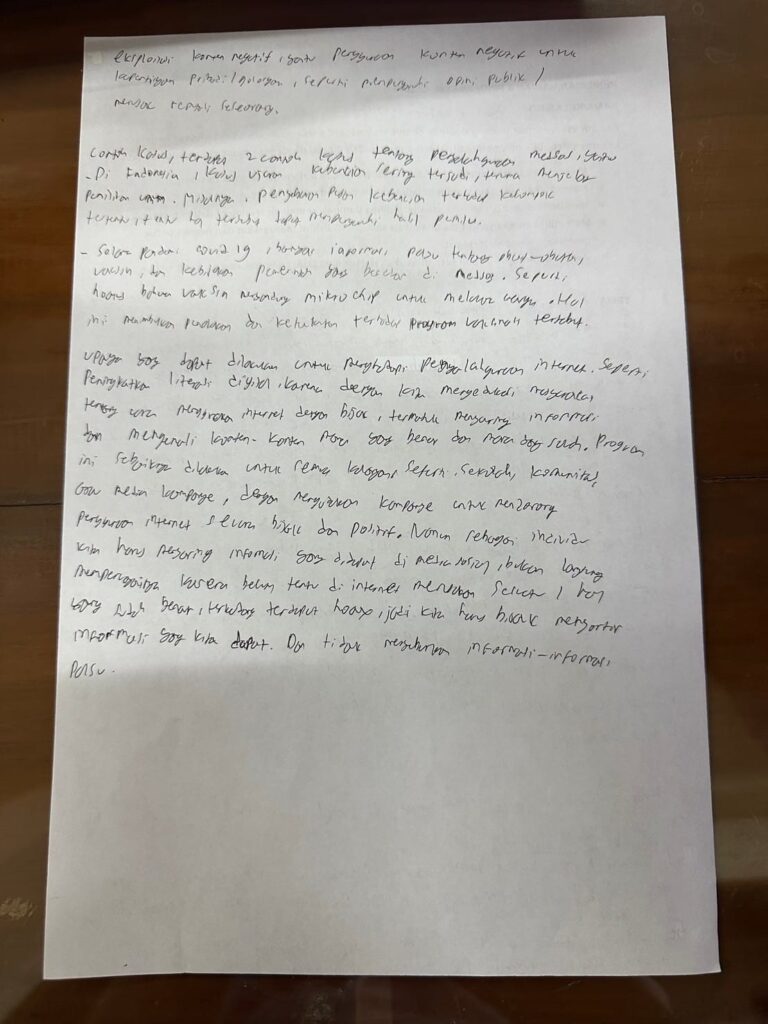 eksploitasi konten negatif, yaitu penggunaan konten negatif untuk
kepentingan pribadi/golongan, seperti mempengaruhi opini publik /
merusak reputasi seseorang.
Contoh kasus, terdapat 2 contoh kasus tentang penyalahgunaan medsos, yaitu
- Di Indonesia, kasus ujaran kebencian sering terjadi, terutama menjelang
pemilihan umum. Misalnya, penyebaran kebencian terhadap kelompok
tertentu, tentu hal tersebut dapat mempengaruhi hasil pemilu.
- Selama pandemi covid 19, banyak informasi palsu tentang obat-obatan,
vaksin, dan kebijakan pemerintah yang beredar di medsos. Seperti
hoaks bahwa vaksin mengandung mikrochip untuk melacak warga. Hal
ini menimbulkan penolakan dan ketakutan terhadap program vaksinasi tersebut.
upaya yang dapat dilakukan untuk menghadapi penyalahgunaan internet. Seperti
Peningkatkan literasi digital, karena dengan kita mengedukasi masyarakat
tentang cara menggunakan internet dengan bijak, termasuk menyaring informasi
dan mengenali konten-konten mana yang benar dan mana yang salah. Program
ini sebaiknya dilakukan untuk semua kalangan, seperti sekolah, komunitas,
media kampanye, dengan mengadakan kampanye untuk mendorong
penggunaan internet secara bijak dan positif. Namun sebagai individu
kita harus menyaring infomasi yang didapat di media sosial, bukan langsung
mempercayainya karena belum tentu di internet merupakan sesuatu / hal
yang sudah benar, terkadang terdapat hoaxs, jadi kita harus bijak mengontor
informasi yang kita dapat. Dan tidak menyebarkan informasi-informasi
palsu.